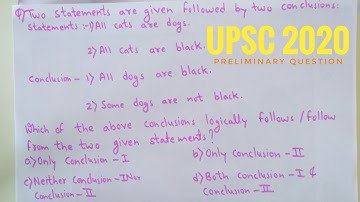 Q) Two statements are given followed by two conclusions:
Statements :- 1) All cats are dogs.
2) All cats are black.
UPSC 2020
PRELIMINARY QUESTION
Conclusion - 1) All dogs are black.
2) Some dogs are not black.
Which of the above conclusions logically follows / follow
from the two given statements?
a) Only Conclusion - I
b) Only Conclusion - II
c) Neither Conclusion - I Nor
Conclusion - II
d) Both Conclusion - I &
Conclusion - II